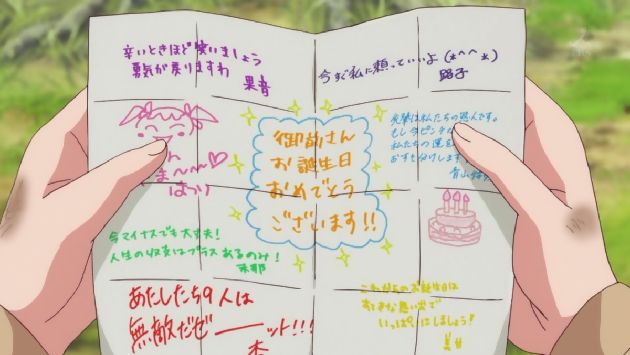 辛いときほど笑いましょう
勇気が戻りますわ
果音
今すぐ私に頼っていいよ(*^^*)
路子
ん
ま～～～♡
はつり
御前さん
お誕生日
おめでとう
ございます!!
先輩は私たちの恩人です。
もし今ピンチなら
私たちの運を
おすそ分けします
青山
今マイナスでも大丈夫!
人生の収支はプラスあるのみ!
あたしたち9人は
無敵だぜーーット!!!
これからのお誕生日は
すてきな思い出で
いっぱいにしましょう!